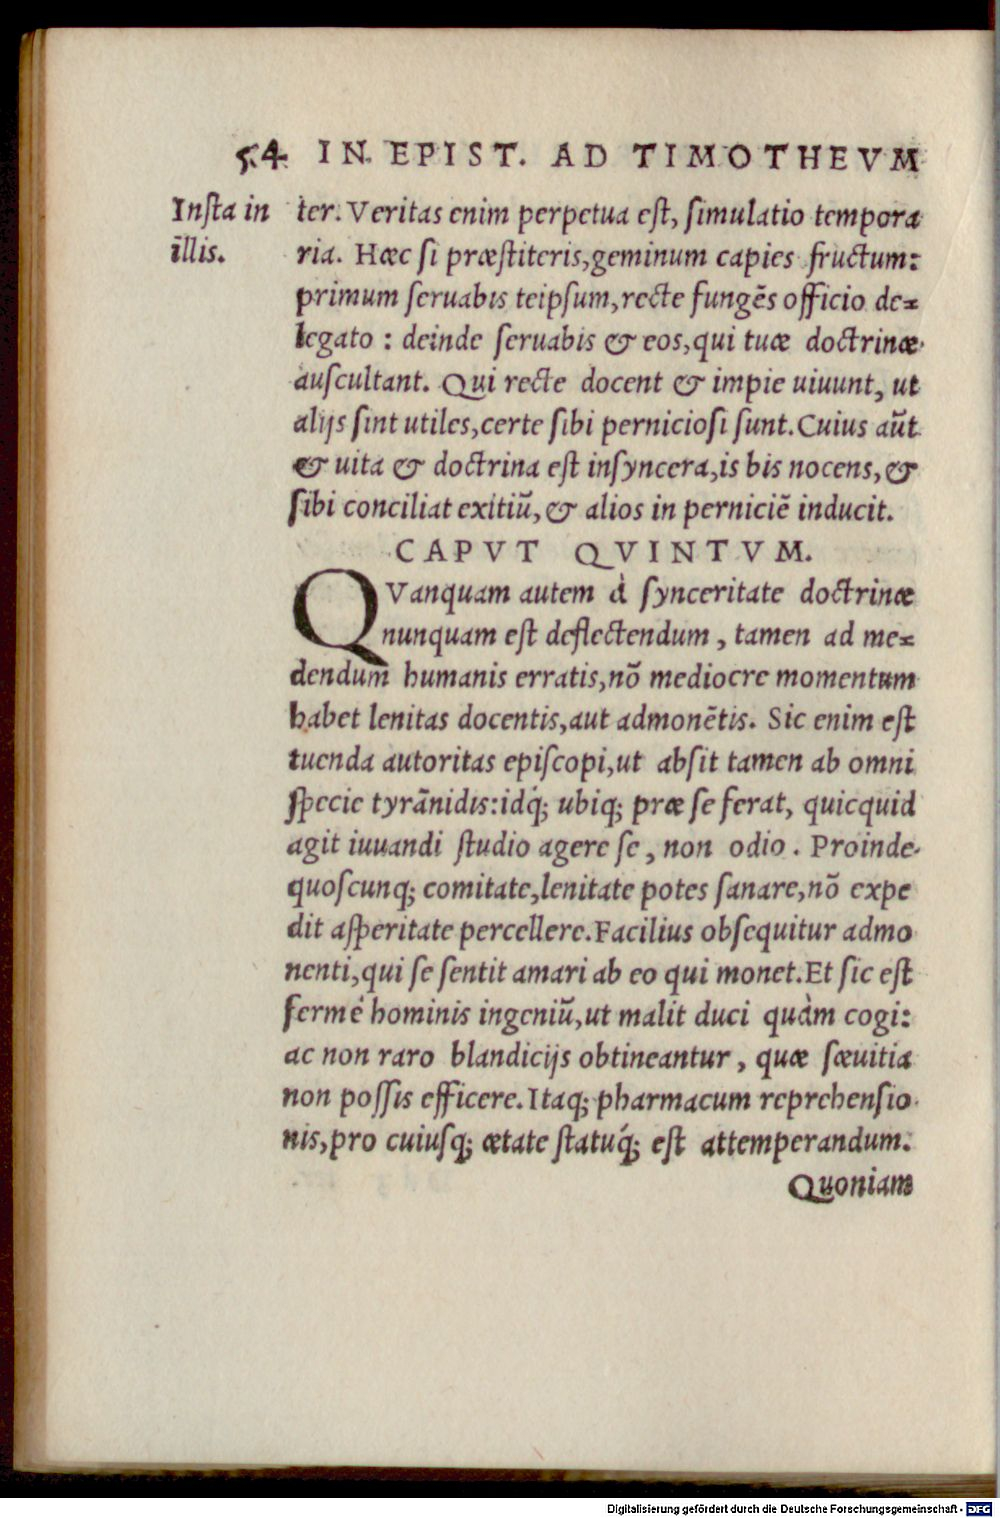 54 IN EPIST. AD TIMOTHEVM
Insta in
illis.
ter. Veritas enim perpetua est, simulatio tempora
ria. Hæc si præstiteris, geminum capies fructum:
primum seruabis teipsum, recte fungēs officio de=
legato : deinde seruabis & eos, qui tuæ doctrinæ
auscultant. Qui recte docent & impie uiuunt, ut
alijs sint utiles, certe sibi perniciosi sunt. Cuius aūt
& uita & doctrina est insyncera, is bis nocens, &
sibi conciliat exitiū, & alios in perniciē inducit.
CAPVT QVINTVM.
QVanquam autem à synceritate doctrinæ
nunquam est deflectendum, tamen ad me=
dendum humanis erratis, nō mediocre momentum
habet lenitas docentis, aut admonētis. Sic enim est
tuenda autoritas episcopi, ut absit tamen ab omni
specie tyrānidis: idq́; ubiq; præ se ferat, quicquid
agit iuuandi studio agere se, non odio. Proinde
quoscunq; comitate, lenitate potes sanare, nō expe
dit asperitate percellere. Facilius obsequitur admo
nenti, qui se sentit amari ab eo qui monet. Et sic est
fermé hominis ingeniū, ut malit duci quàm cogi:
ac non raro blandicijs obtineantur, quæ sæuitia
non possis efficere. Itaq; pharmacum reprehensio
nis, pro cuiusq; ætate statuq́; est attemperandum.
Quoniam
Digitalisierung gefördert durch die Deutsche Forschungsgemeinschaft - DFG